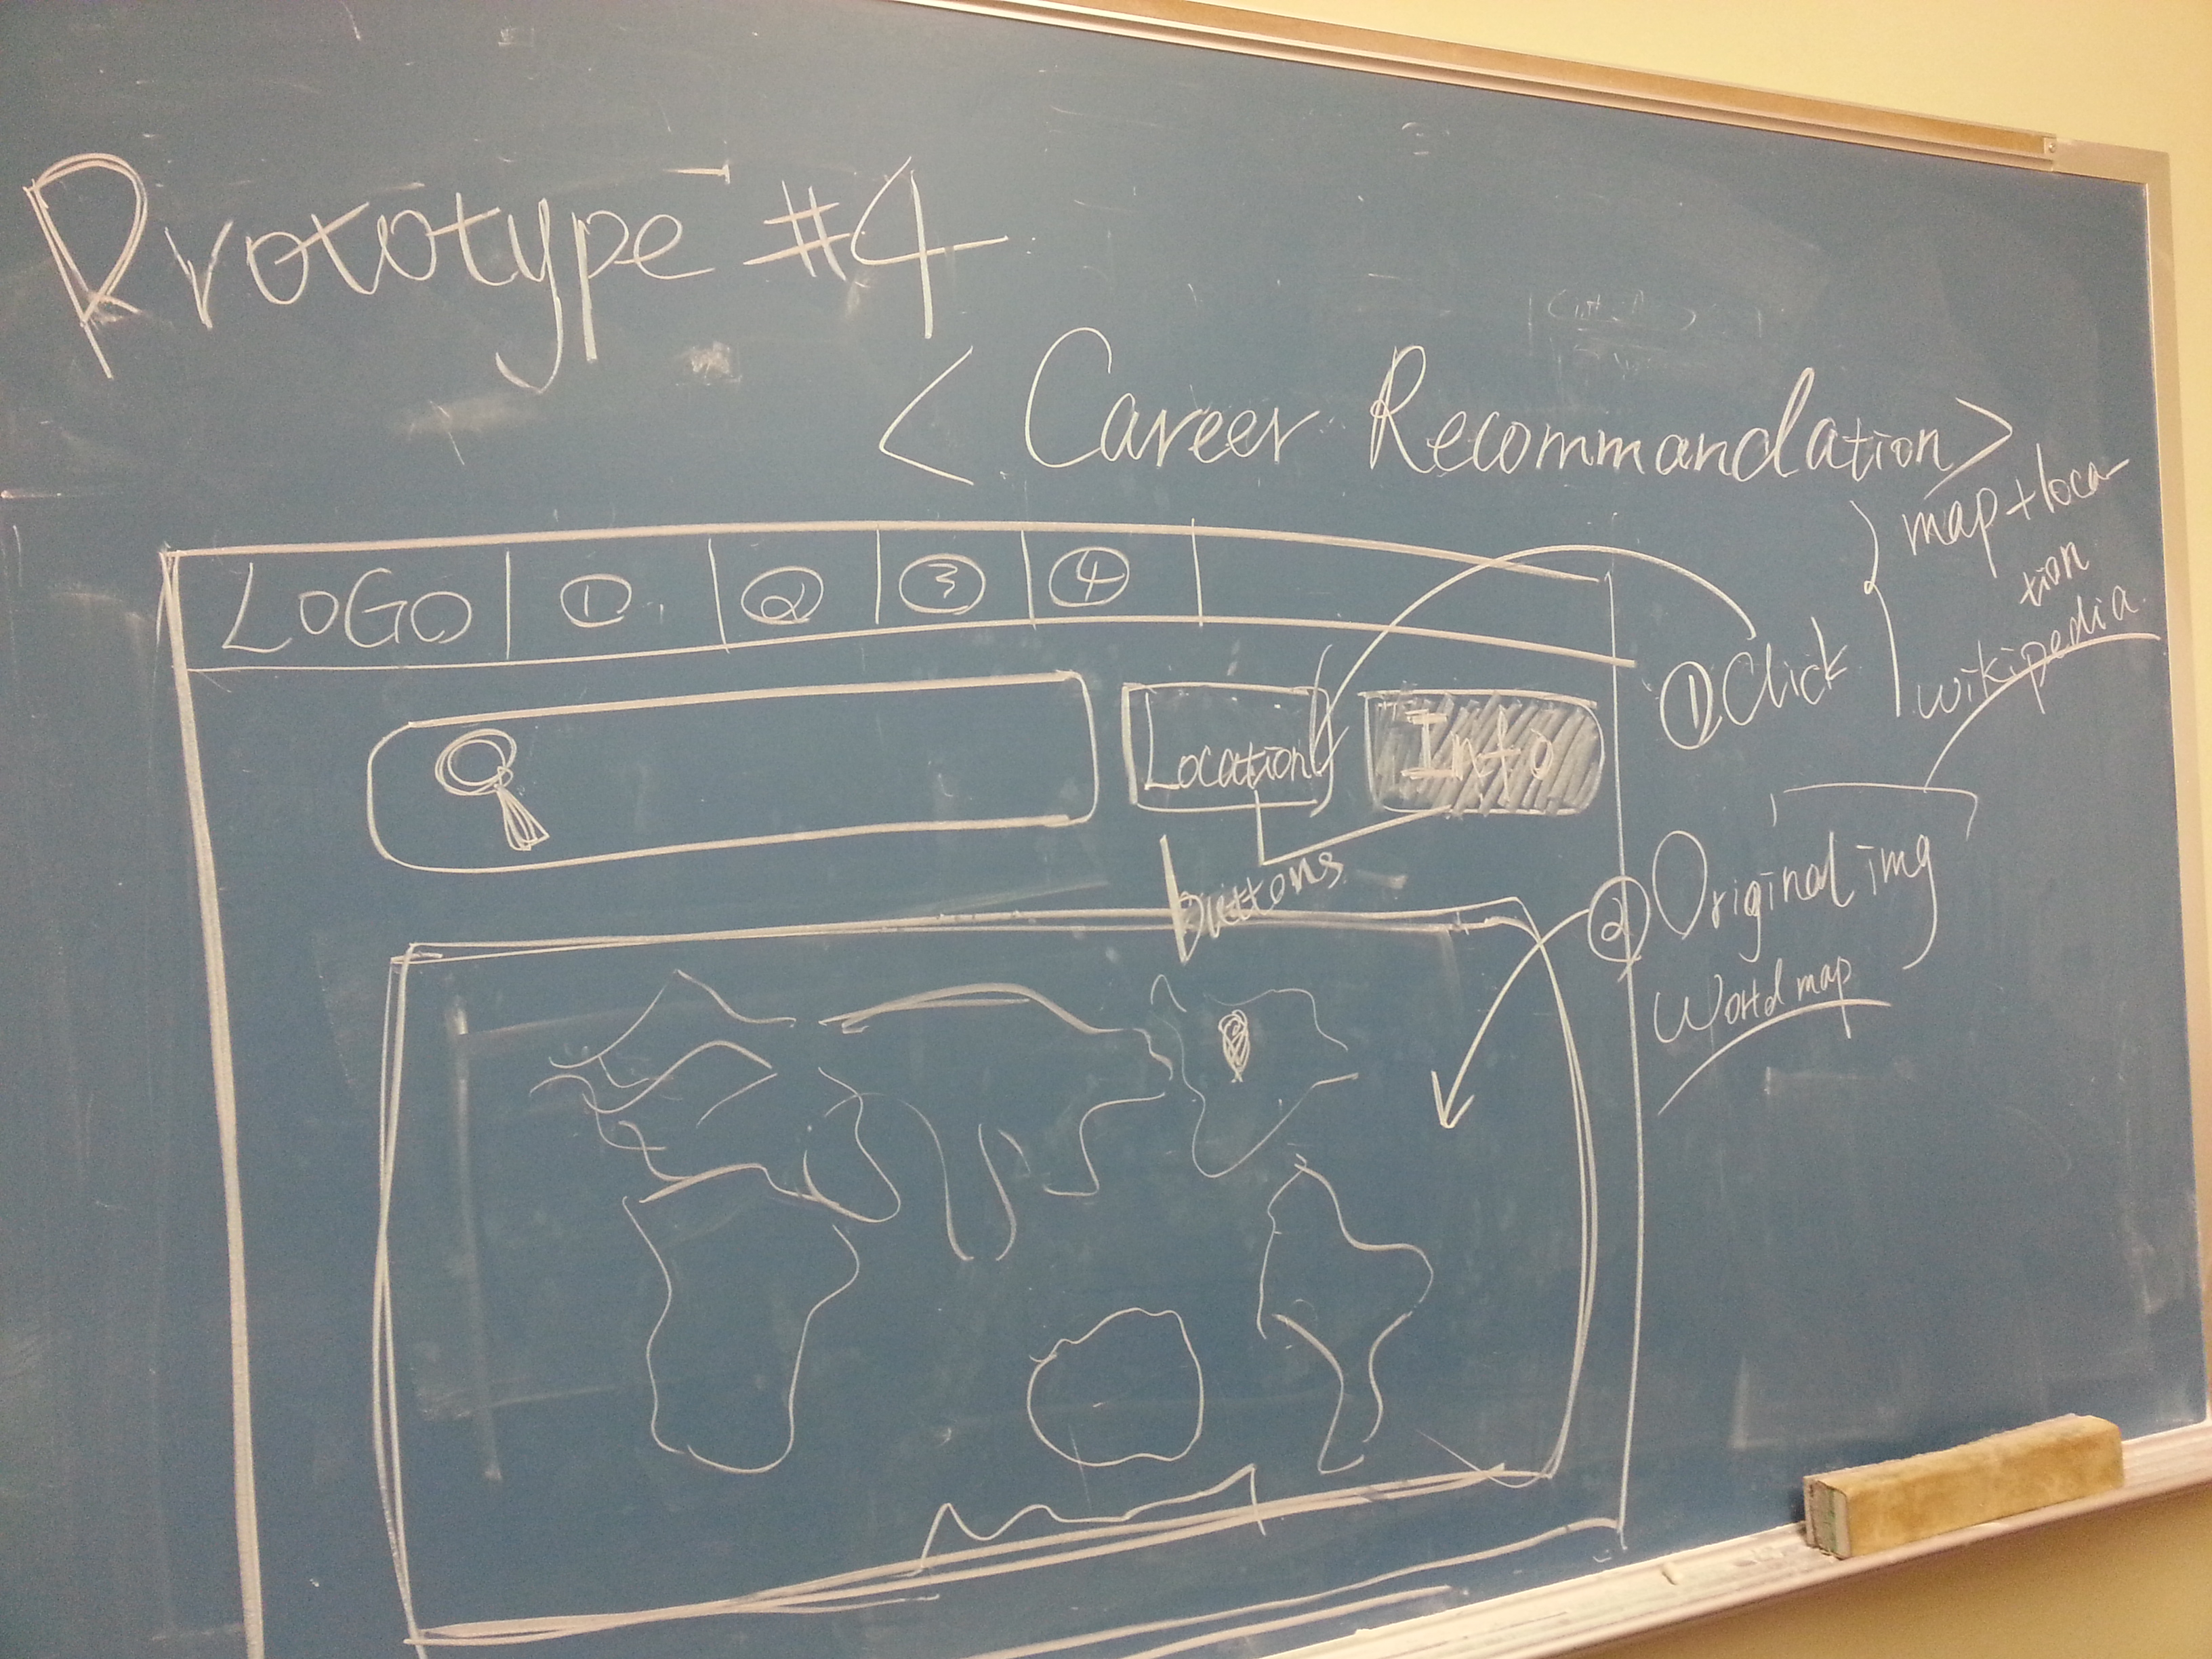 Prototype #4
< Career Recommandation>
LOGO ① ② ③ ④
Location Info
buttons
① Click
map + loca
tion
wikipedia
② Original img
World map